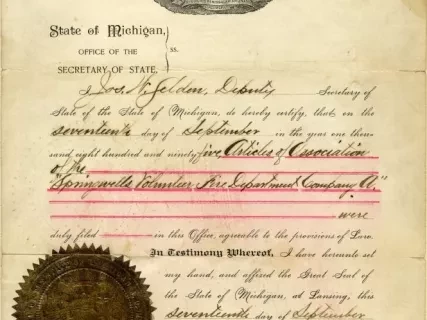 State of Michigan,
OFFICE OF THE ss.
SECRETARY OF STATE.
I, Jos. N. Selden, Deputy Secretary of
State of the State of Michigan, do hereby certify, that on the
seventeenth day of September in the year one thou-
sand eight hundred and ninety five Articles of Association
of the
"Springwells Volunteer Fire Department Company A."
were
duly filed in this Office, agreeable to the provisions of Law.
In Testimony Whereof, I have hereunto set
my hand, and affixed the Great Seal of
the State of Michigan, at Lansing, this
seventeenth day of September